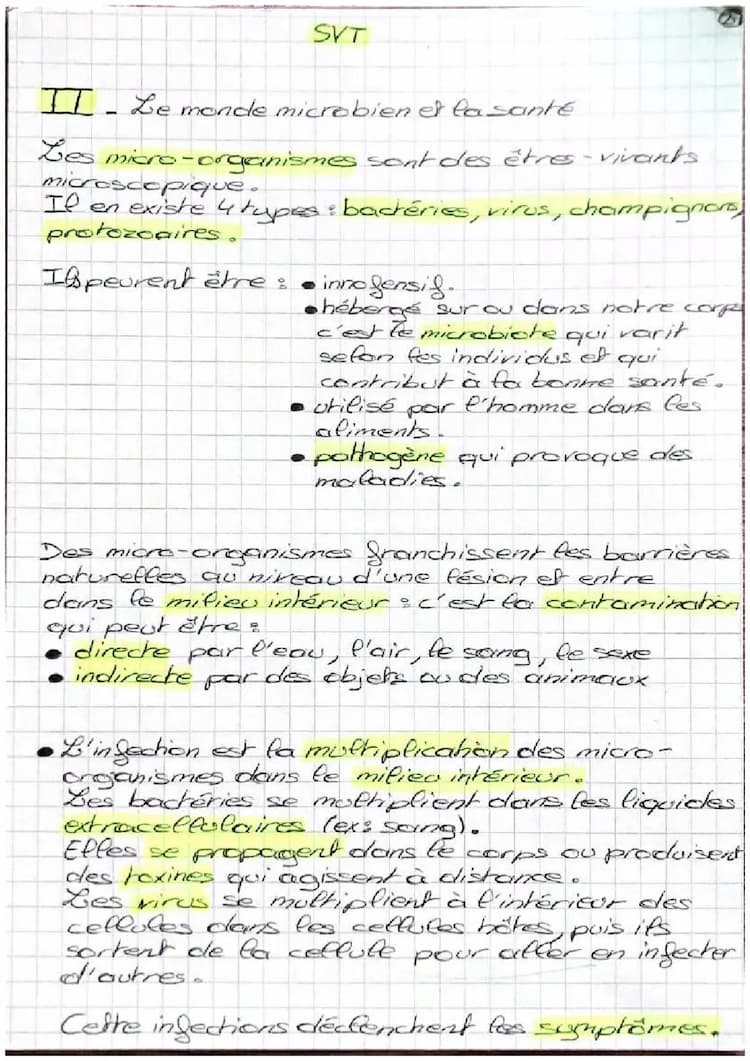 2
SVT
II - Le monde microbien et la santé
Les micro-organismes sont des êtres-vivants
microscopique.
Il en existe 4 types : bactéries, virus, champignons,
protozoaires.
Ils peuvent être : • innofensif.
• hébergé sur ou dans notre corps
c'est le microbiote qui varit
selon les individus et qui
contribut à la bonne santé.
• utilisé par l'homme dans les
aliments.
• pathogène qui provoque des
maladies.
Des micro-organismes franchissent les barrières
naturelles au niveau d'une lésion et entre
dans le milieu intérieur : c'est la contamination
qui peut être :
• directe par l'eau, l'air, le sang, le sexe
• indirecte par des objets ou des animaux
• L'infection est la multiplication des micro-
organismes dans le milieu intérieur.
Les bactéries se multiplient dans les liquides
extracellulaires (ex: sang).
Elles se propagent dans le corps ou produisent
des toxines qui agissent à distance.
Les virus se multiplient à l'intérieur des
cellules dans les cellules hôtes, puis ils
sortent de la cellule pour aller en infecter
d'autres.
Cette infections déclenchent les symptômes.